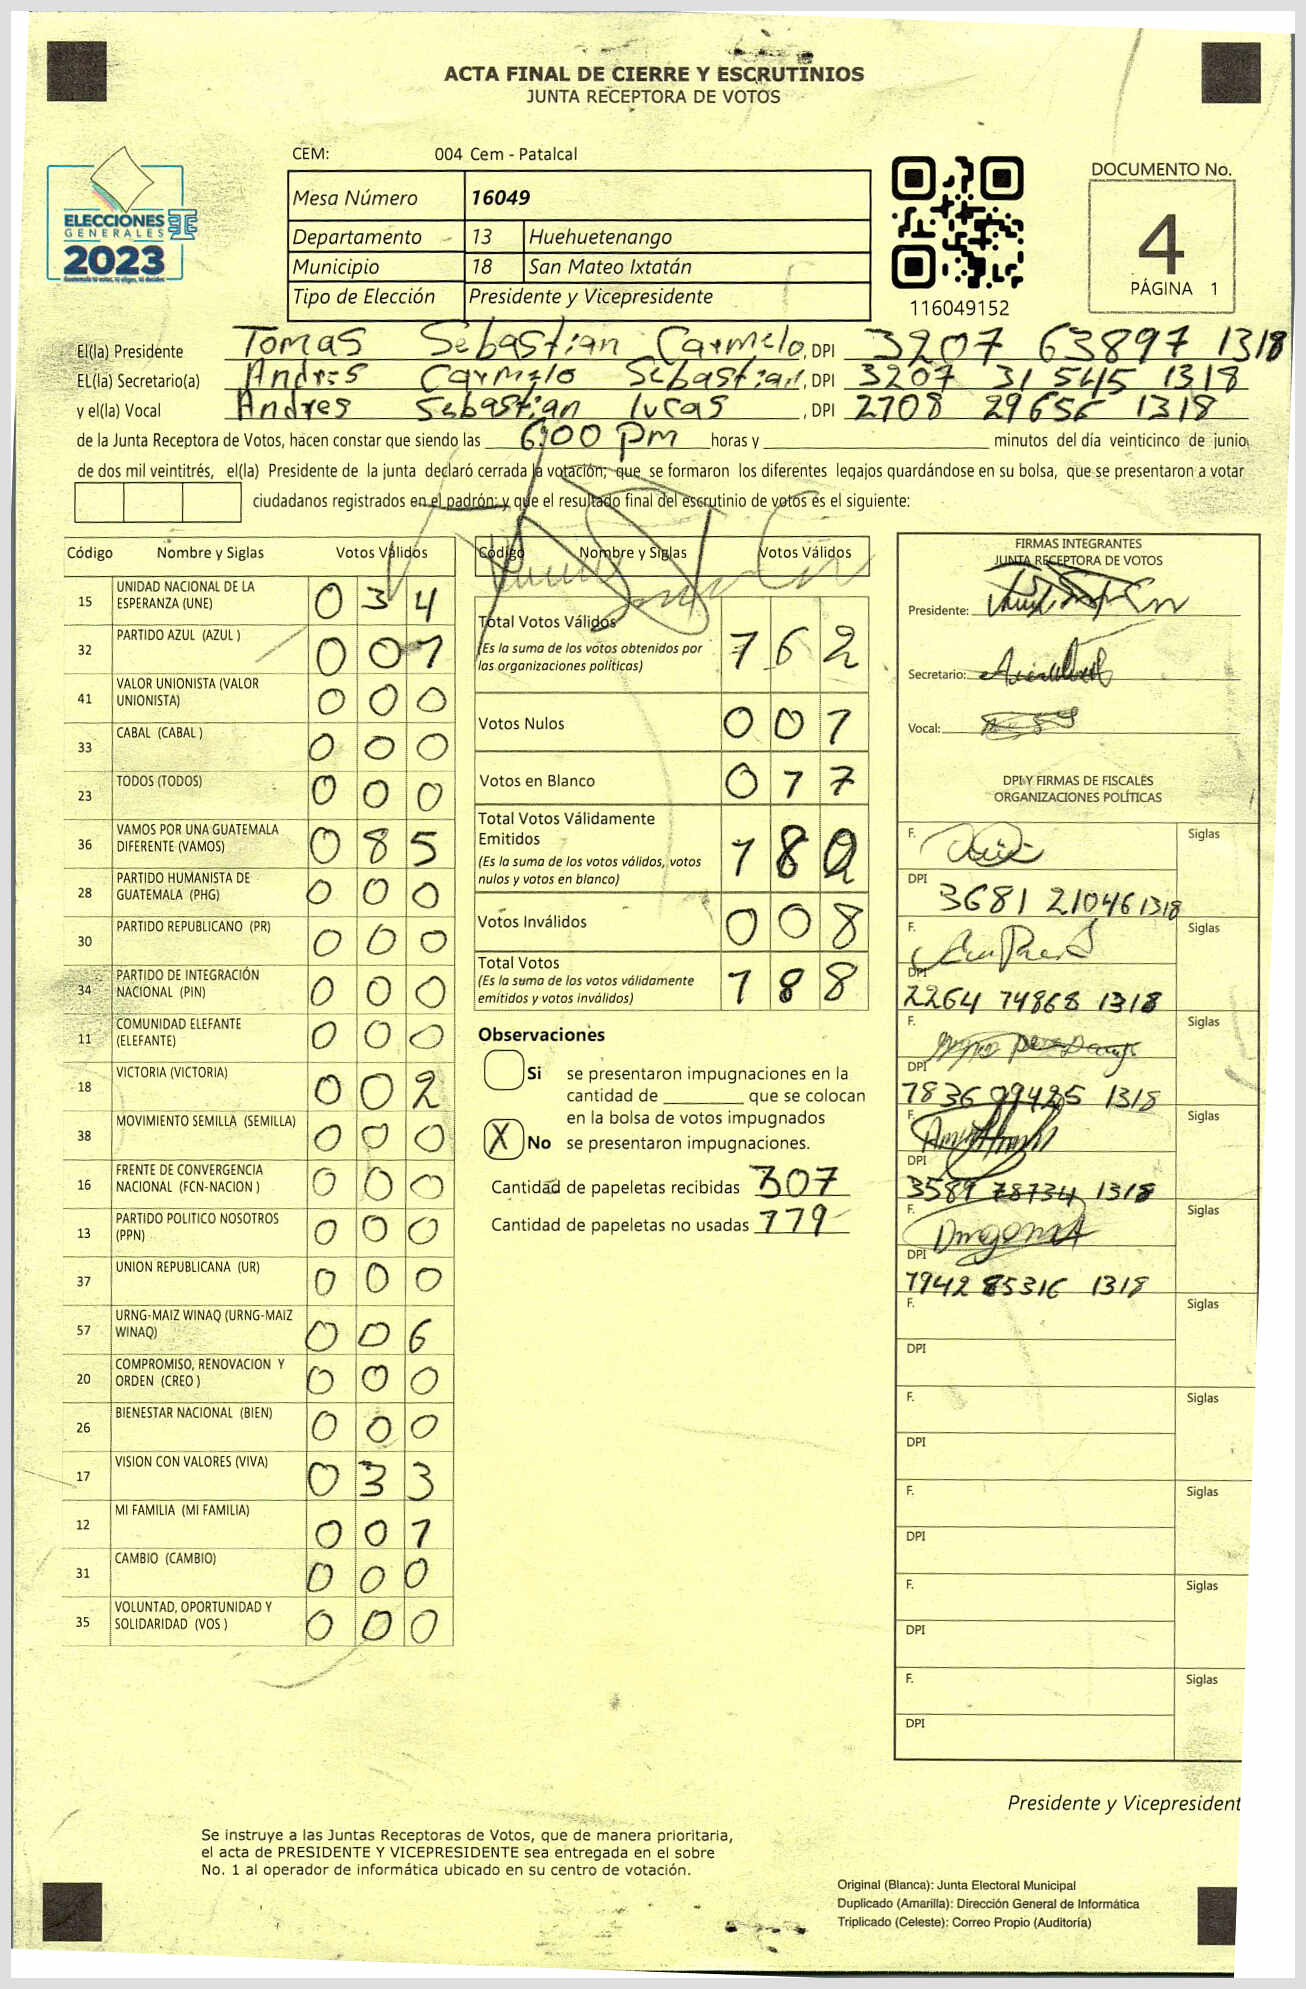 ACTA FINAL DE CIERRE Y ESCRUTINIOS
JUNTA RECEPTORA DE VOTOS
ELECCIONES
GENERALES
2023
CEM: 004 Cem - Patalcal
Mesa Número 16049
Departamento 13 Huehuetenango
Municipio 18 San Mateo Ixtatán
Tipo de Elección Presidente y Vicepresidente
116049152
DOCUMENTO No.
4
PÁGINA 1
El(la) Presidente Tomas Sebastian Carmelo, DPI 3207 63897 1318
EL(la) Secretario(a) Andres Carmelo Sebastian, DPI 3207 31545 1318
y el(la) Vocal Andres Sebastian Lucas, DPI 2708 29656 1318
de la Junta Receptora de Votos, hacen constar que siendo las 6:00 pm horas y minutos del día veinticinco de junio
de dos mil veintitrés, el(la) Presidente de la junta declaró cerrada la votación; que se formaron los diferentes legajos quardándose en su bolsa, que se presentaron a votar
ciudadanos registrados en el padrón; y que el resultado final del escrutinio de votos es el siguiente:
Código Nombre y Siglas Votos Válidos
15 UNIDAD NACIONAL DE LA ESPERANZA (UNE) 0 3 4
32 PARTIDO AZUL (AZUL ) 0 0 1
41 VALOR UNIONISTA (VALOR UNIONISTA) 0 0 0
33 CABAL (CABAL ) 0 0 0
23 TODOS (TODOS) 0 0 0
36 VAMOS POR UNA GUATEMALA DIFERENTE (VAMOS) 0 8 5
28 PARTIDO HUMANISTA DE GUATEMALA (PHG) 0 0 0
30 PARTIDO REPUBLICANO (PR) 0 0 0
34 PARTIDO DE INTEGRACIÓN NACIONAL (PIN) 0 0 0
11 COMUNIDAD ELEFANTE (ELEFANTE) 0 0 0
18 VICTORIA (VICTORIA) 0 0 2
38 MOVIMIENTO SEMILLA (SEMILLA) 0 0 0
16 FRENTE DE CONVERGENCIA NACIONAL (FCN-NACION ) 0 0 0
13 PARTIDO POLITICO NOSOTROS (PPN) 0 0 0
37 UNION REPUBLICANA (UR) 0 0 0
57 URNG-MAIZ WINAQ (URNG-MAIZ WINAQ) 0 0 6
20 COMPROMISO, RENOVACION Y ORDEN (CREO ) 0 0 0
26 BIENESTAR NACIONAL (BIEN) 0 0 0
17 VISION CON VALORES (VIVA) 0 3 3
12 MI FAMILIA (MI FAMILIA) 0 0 1
31 CAMBIO (CAMBIO) 0 0 0
35 VOLUNTAD, OPORTUNIDAD Y SOLIDARIDAD (VOS ) 0 0 0
Código Nombre y Siglas Votos Válidos
Total Votos Válidos 1 6 2
(Es la suma de los votos obtenidos por
las organizaciones políticas)
Votos Nulos 0 0 1
Votos en Blanco 0 1 7
Total Votos Válidamente
Emitidos 1 8 0
(Es la suma de los votos válidos, votos
nulos y votos en blanco)
Votos Inválidos 0 0 8
Total Votos 1 8 8
(Es la suma de los votos válidamente
emitidos y votos inválidos)
Observaciones
Si se presentaron impugnaciones en la
cantidad de ________ que se colocan
en la bolsa de votos impugnados
X No se presentaron impugnaciones.
Cantidad de papeletas recibidas 307
Cantidad de papeletas no usadas 119
FIRMAS INTEGRANTES
JUNTA RECEPTORA DE VOTOS
Presidente:
Secretario:
Vocal:
DPI Y FIRMAS DE FISCALES
ORGANIZACIONES POLÍTICAS
F. Siglas
DPI 3681 21046 1318
F. Siglas
DPI 2264 74868 1318
F. Siglas
DPI 1836 09425 1318
F. Siglas
DPI 3589 78734 1318
F. Siglas
DPI 1942 85316 1318
F. Siglas
DPI
F. Siglas
DPI
F. Siglas
DPI
F. Siglas
DPI
F. Siglas
DPI
Presidente y Vicepresident
Se instruye a las Juntas Receptoras de Votos, que de manera prioritaria,
el acta de PRESIDENTE Y VICEPRESIDENTE sea entregada en el sobre
No. 1 al operador de informática ubicado en su centro de votación.
Original (Blanca): Junta Electoral Municipal
Duplicado (Amarilla): Dirección General de Informática
Triplicado (Celeste): Correo Propio (Auditoría)